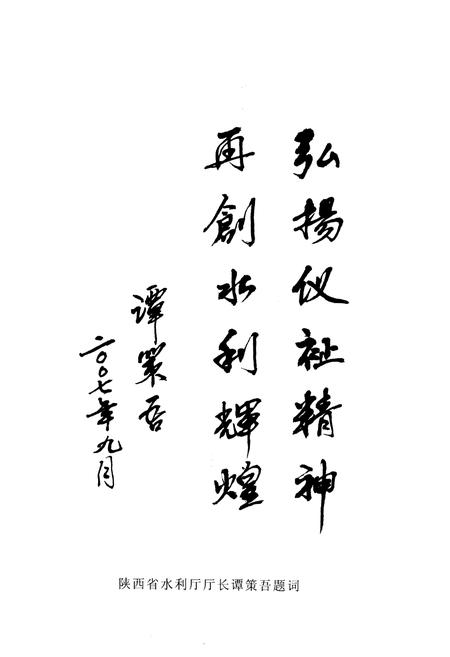 弘揚仪祉精神
再創水利輝煌
谭策吾
二〇〇七年九月
陕西省水利厅厅长谭策吾题词